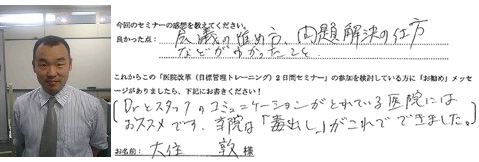 今回のセミナーの感想を教えてください。
良かった点： 会議の進め方、問題解決の仕方
などがわかったこと。
これからこの「医院改革（目標管理トレーニング）2日間セミナー」の参加を検討している方に「お勧め」メッセ
ージがありましたら、下記にお書きください！
Drとスタッフのコミュニケーションがとれている医院には
おススメです。当院は「毒出し」がこれでできました。
お名前： 大住 敦 様